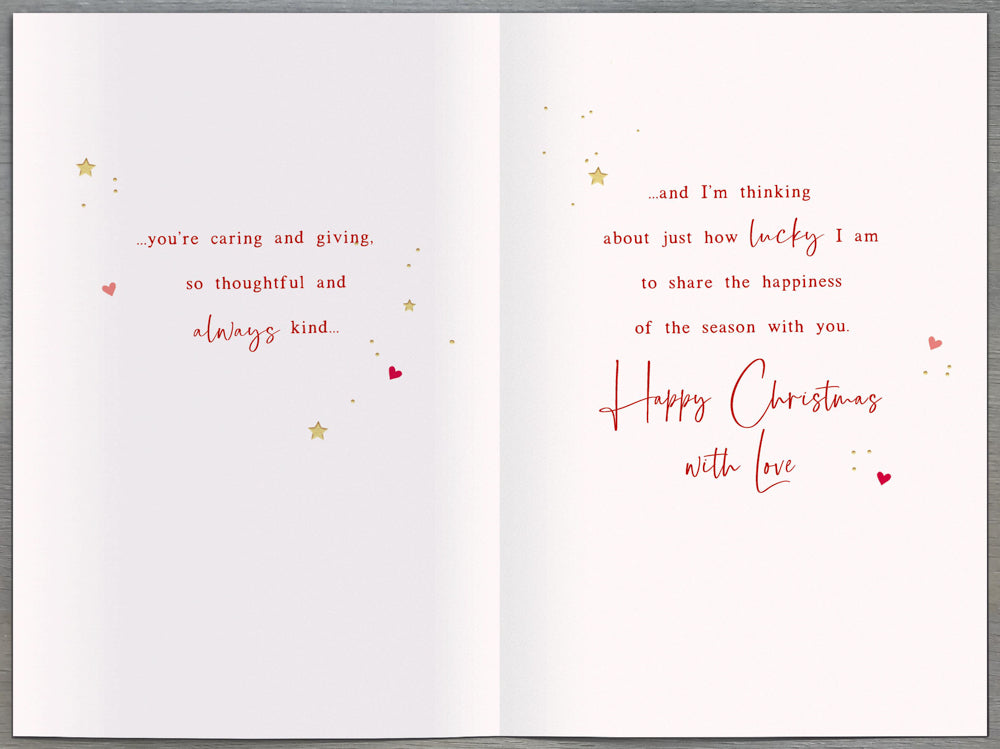 ...you're caring and giving,
so thoughtful and
always kind...
...and I'm thinking
about just how lucky I am
to share the happiness
of the season with you.
Happy Christmas
with Love